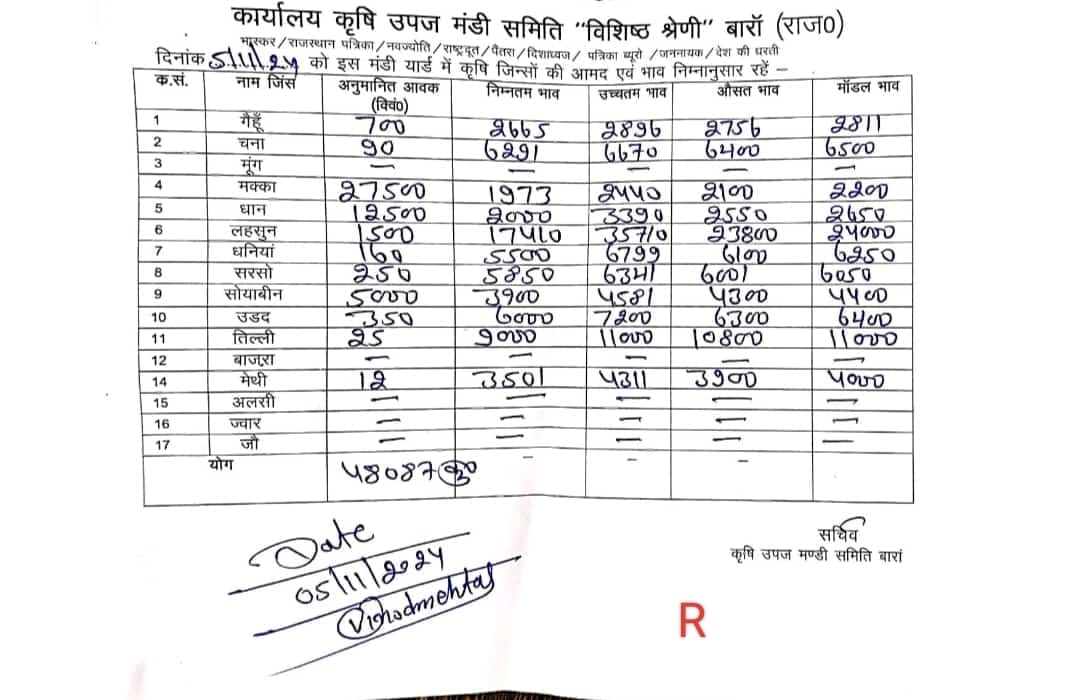 कार्यालय कृषि उपज मंडी समिति "विशिष्ठ श्रेणी" बारॉ (राज0)
भास्कर/राजस्थान पत्रिका/नवज्योति/राष्ट्रदूत/पैंतरा/दिशाध्वज/ पत्रिका ब्यूरो /जननायक/देश की धरती
दिनांक 5/11/24 को इस मंडी यार्ड में कृषि जिन्सों की आमद एवं भाव निम्नानुसार रहें –
क.सं. नाम जिंस अनुमानित आवक (क्विं0) निम्नतम भाव उच्चतम भाव औसत भाव मॉडल भाव
1 गैहूँ 700 2665 2896 2756 2811
2 चना 90 6291 6670 6400 6500
3 मूंग – – – – –
4 मक्का 27500 1973 2440 2100 2200
5 धान 12500 2000 3390 2550 2650
6 लहसुन 1500 17410 35710 23800 24000
7 धनियां 160 5500 6799 6100 6250
8 सरसो 250 5850 6341 6001 6050
9 सोयाबीन 5000 3900 4581 4300 4400
10 उडद 350 6000 7200 6300 6400
11 तिल्ली 25 9000 11000 10800 11000
12 बाजरा – – – – –
14 मेथी 12 3501 4311 3900 4000
15 अलसी – – – – –
16 ज्वार – – – – –
17 जौ – – – – –
योग 48087 – – –
सचिव
कृषि उपज मण्डी समिति बारां
Date
05/11/2024
Vinodmehta
R